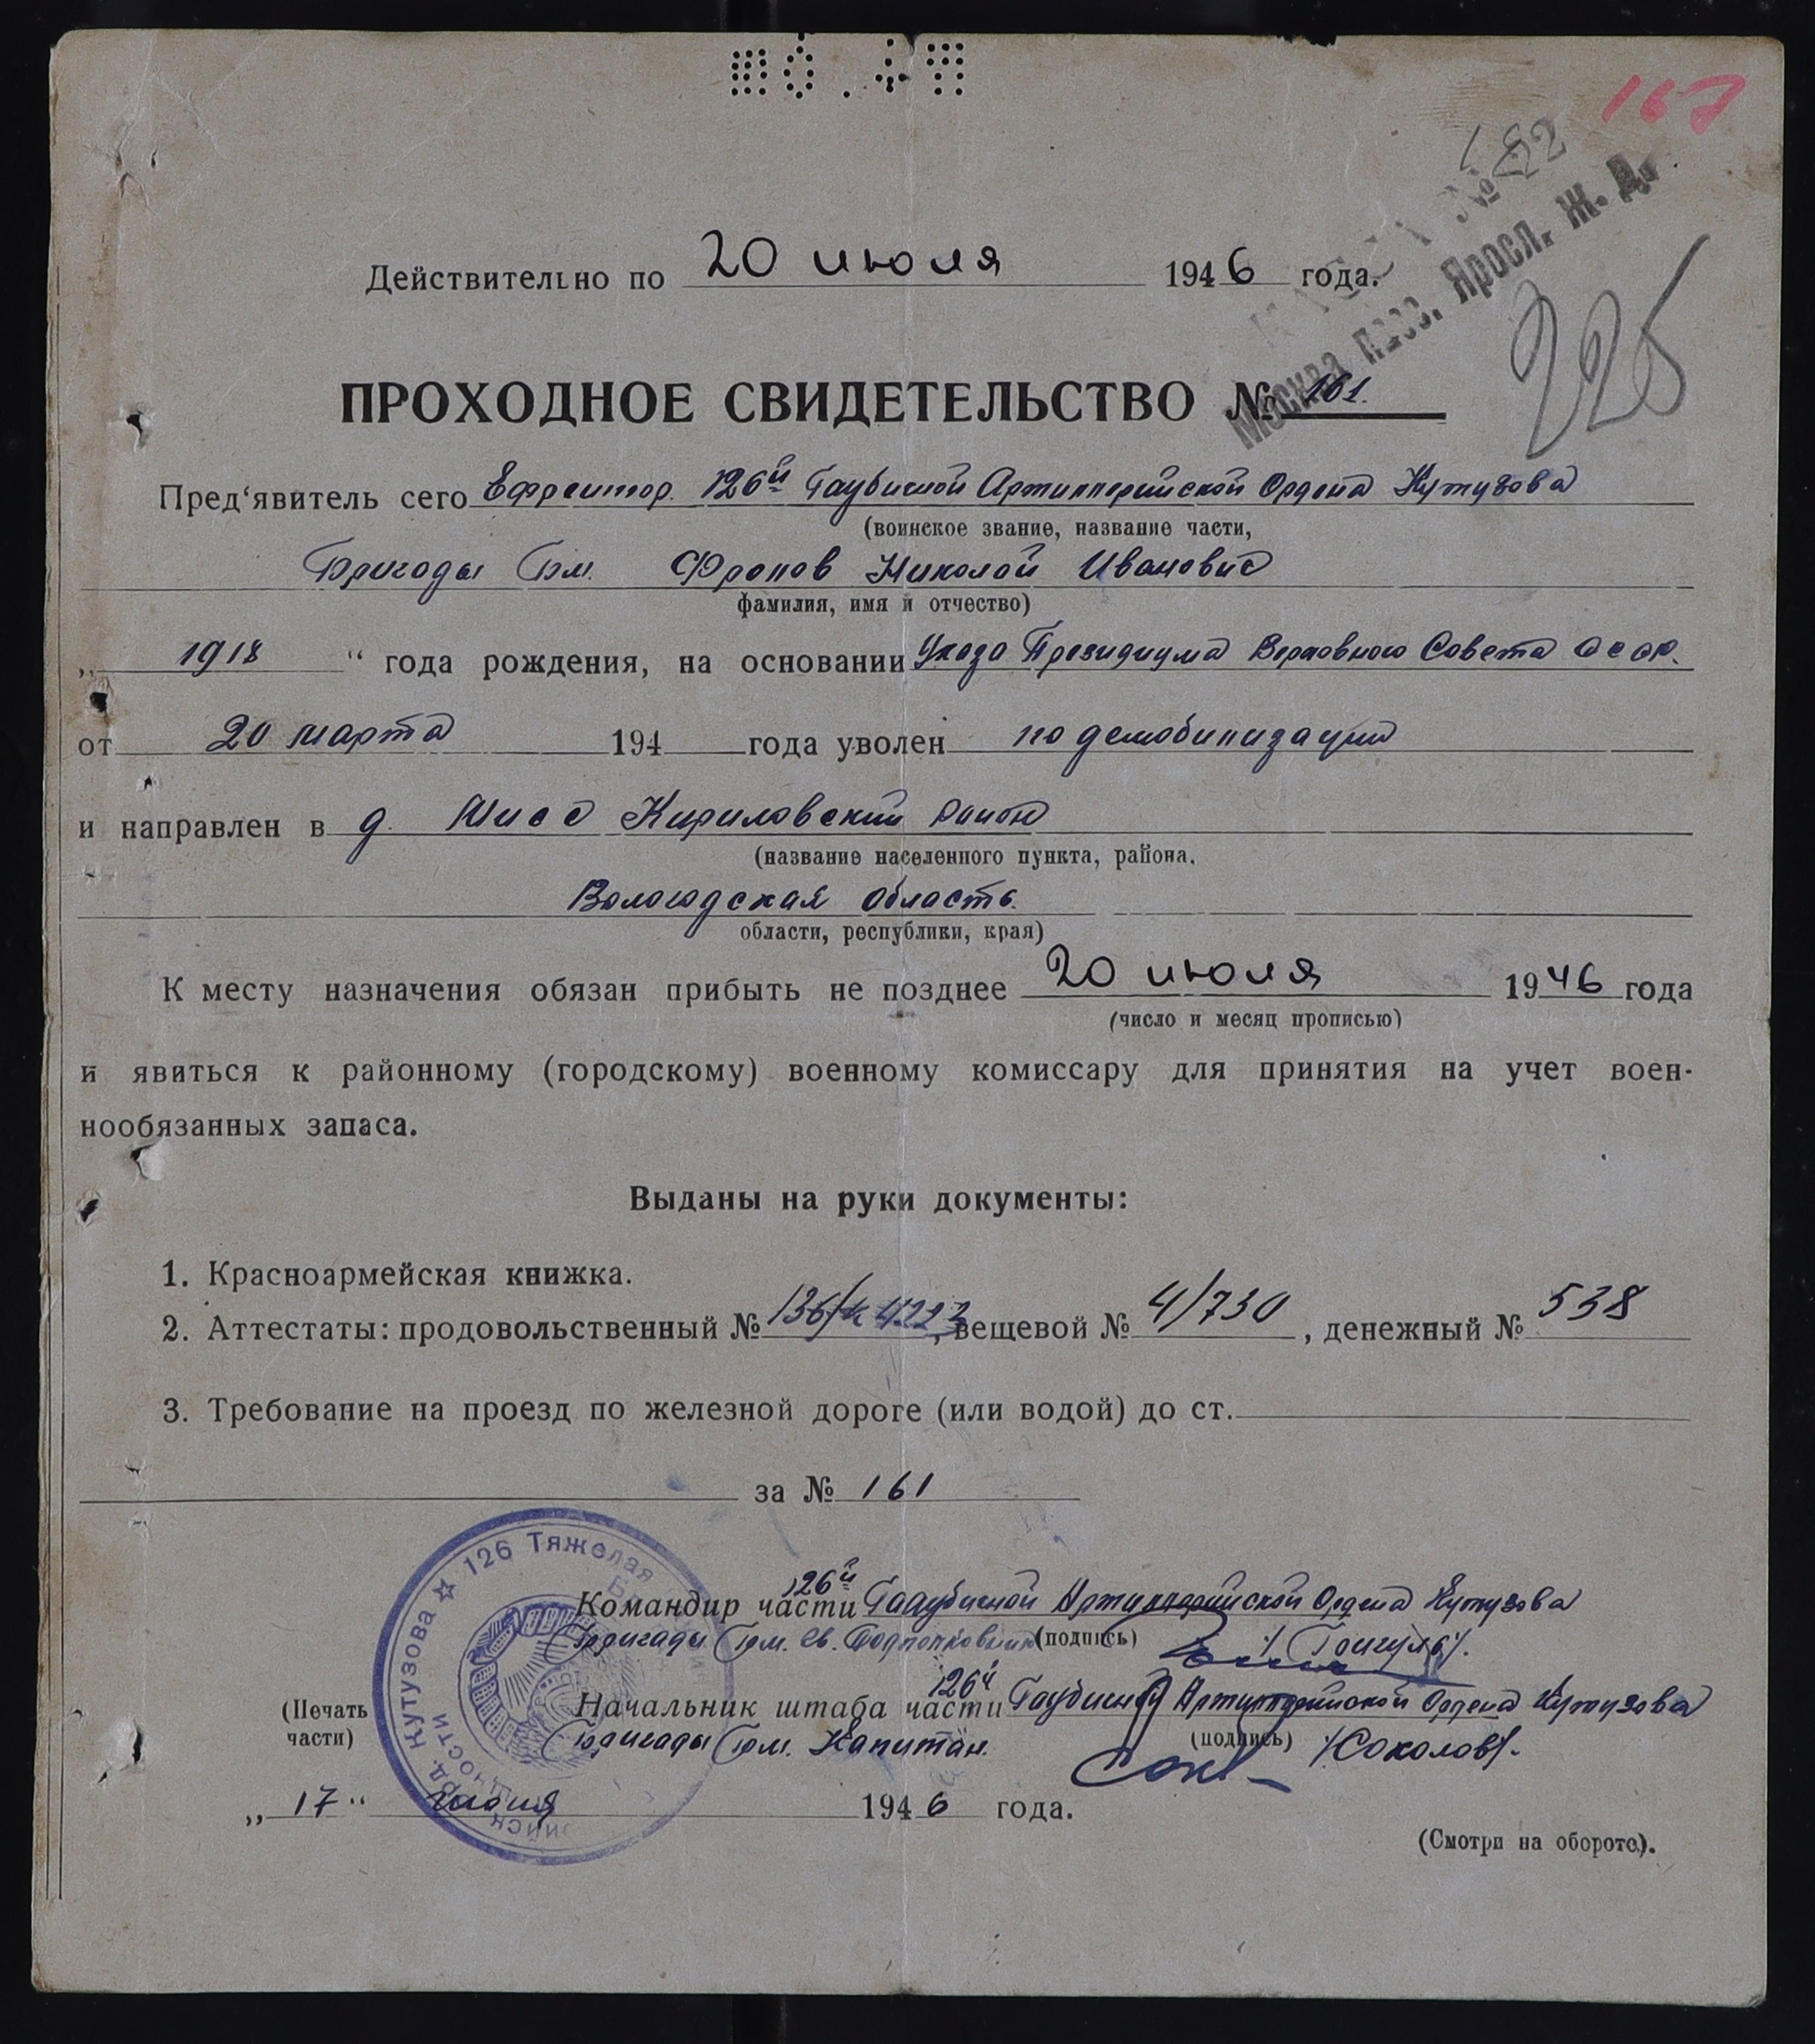 167
№ 22
Москва пасс. Яросл. Ж. Д.
225
Действительно по 20 июля 1946 года.
ПРОХОДНОЕ СВИДЕТЕЛЬСТВО № 161.
Пред‘явитель сего Ефрейтор. 126й Гаубичной Артиллерийской Ордена Кутузова
(воинское звание, название части,
Бригады Бм. Фролов Николай Иванович
фамилия, имя и отчество)
„ 1918 “ года рождения, на основании Указа Президиума Верховного Совета СССР.
от 20 марта 194 года уволен по демобилизации
и направлен в д. Кириловский район
(название населенного пункта, района,
Вологодская область.
области, республики, края)
К месту назначения обязан прибыть не позднее 20 июля 1946 года
(число и месяц прописью)
и явиться к районному (городскому) военному комиссару для принятия на учет воен-
нообязанных запаса.
Выданы на руки документы:
1. Красноармейская книжка.
2. Аттестаты: продовольственный № , вещевой № 4/730 , денежный № 538
3. Требование на проезд по железной дороге (или водой) до ст.
за № 161
☆ 126 Тяжелая
Кутузова
Командир части 126й Гаубичной Артиллерийской Ордена Кутузова
Бригады Бм. Гв. Подполковник (подпись)
Начальник штаба части 126й Гаубичной Артиллерийской Ордена Кутузова
(Печать
части)
Бригады Бм. Капитан. (подпись) /Соколов/.
„ 17 “ июня 1946 года.
(Смотри на обороте).